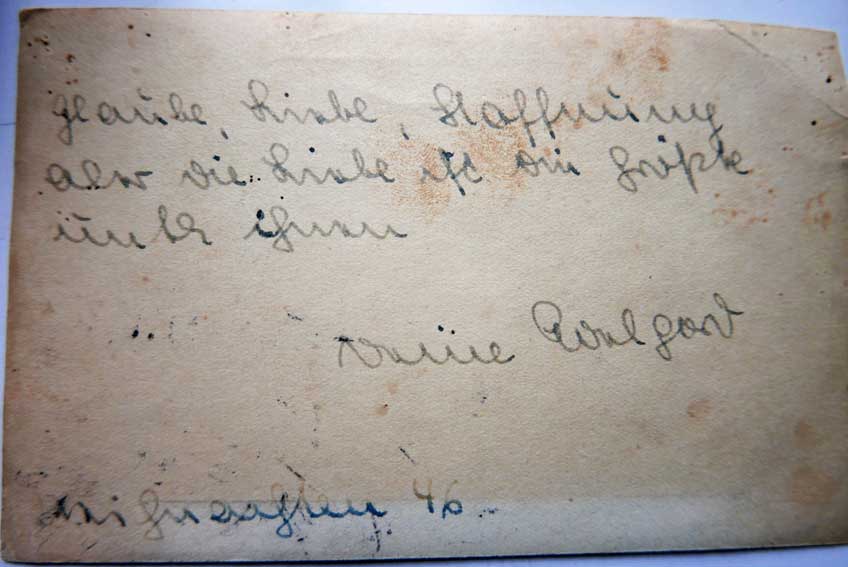 Glaube, Liebe, Hoffnung
aber die Liebe ist die Größte
unter ihnen
Deine Edelgard
Weihnachten 46.